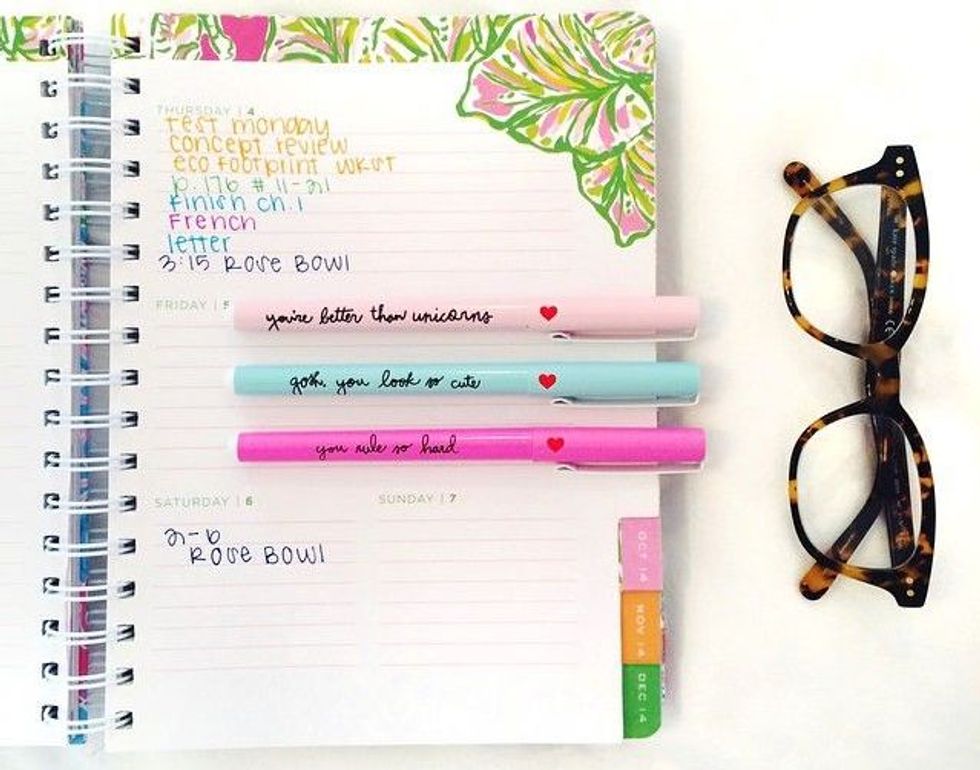 THURSDAY | 4
test monday
concept review
eco footprint wkst
p. 176 # 11-21
finish ch. 1
French
letter
3:15 Rose Bowl
FRIDAY | 5
you're better than unicorns
gosh, you look so cute
you rule so hard
SATURDAY | 6
SUNDAY | 7
2-6
Rose Bowl
OCT 14
NOV 14
DEC 14
CE